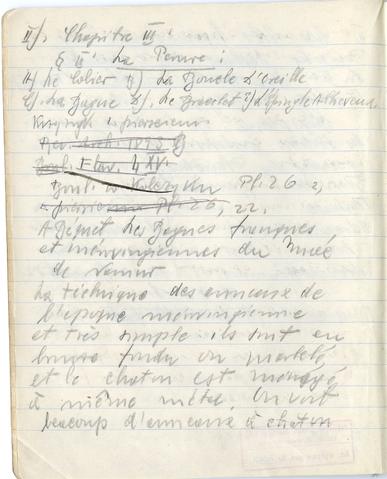 II). Chapitre III:
§ II La Parure:
A) Le Collier B) La Boucle d'oreille
C). La Bague D). Le Bracelet E) L'Epingle à cheveux
Krzyżyk i pierścienie
1893
Eluv. 4 XV.
Pl. 26 2)
Pl 26, 22.
A Bequet des Bagues franques,
et mérovingiennes du Musée
de Namur
La technique des anneaux de
l'epoque mérovingienne
et très simple: ils sont en
bronze fondu ou martelé
et le chaton est menagé
à même métal. On voit
beaucoup d'anneaux à chaton